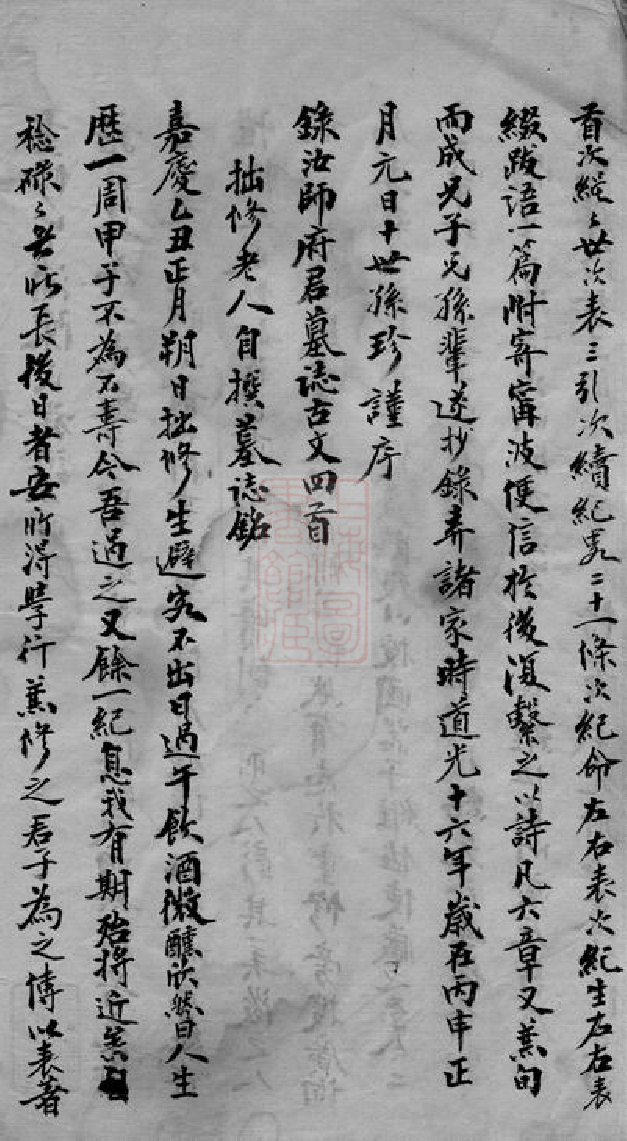 首次縱々世次表三引次續紀畧二十一條次紀命左右表次紀生左右表
綴跋語一篇附寄甯波便信於後復繫之以詩凡六章又兼旬
而成兄子兄孫輩遂抄錄弆諸家時道光十六年歲在丙申正
月元日十世孫珍謹序
錄汝師府君墓誌古文四首
拙修老人自撰墓誌銘
嘉慶乙丑正月朔日拙修生避客不出日過午飲酒微醺欣然曰人生
歷一周甲子不為不壽今吾過之又餘一紀息我有期殆將近矣
稔碌々無所長後日者安所得學行兼修之君子為之傳以表著